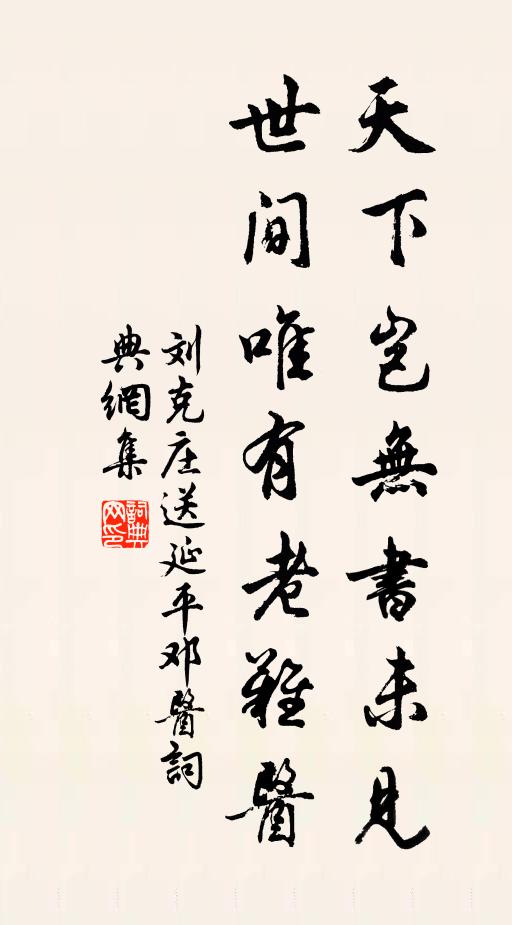 天下岂無書未見
世间唯有老難醫
刘克庄送延平邓醫詞
典網集
詞典网印